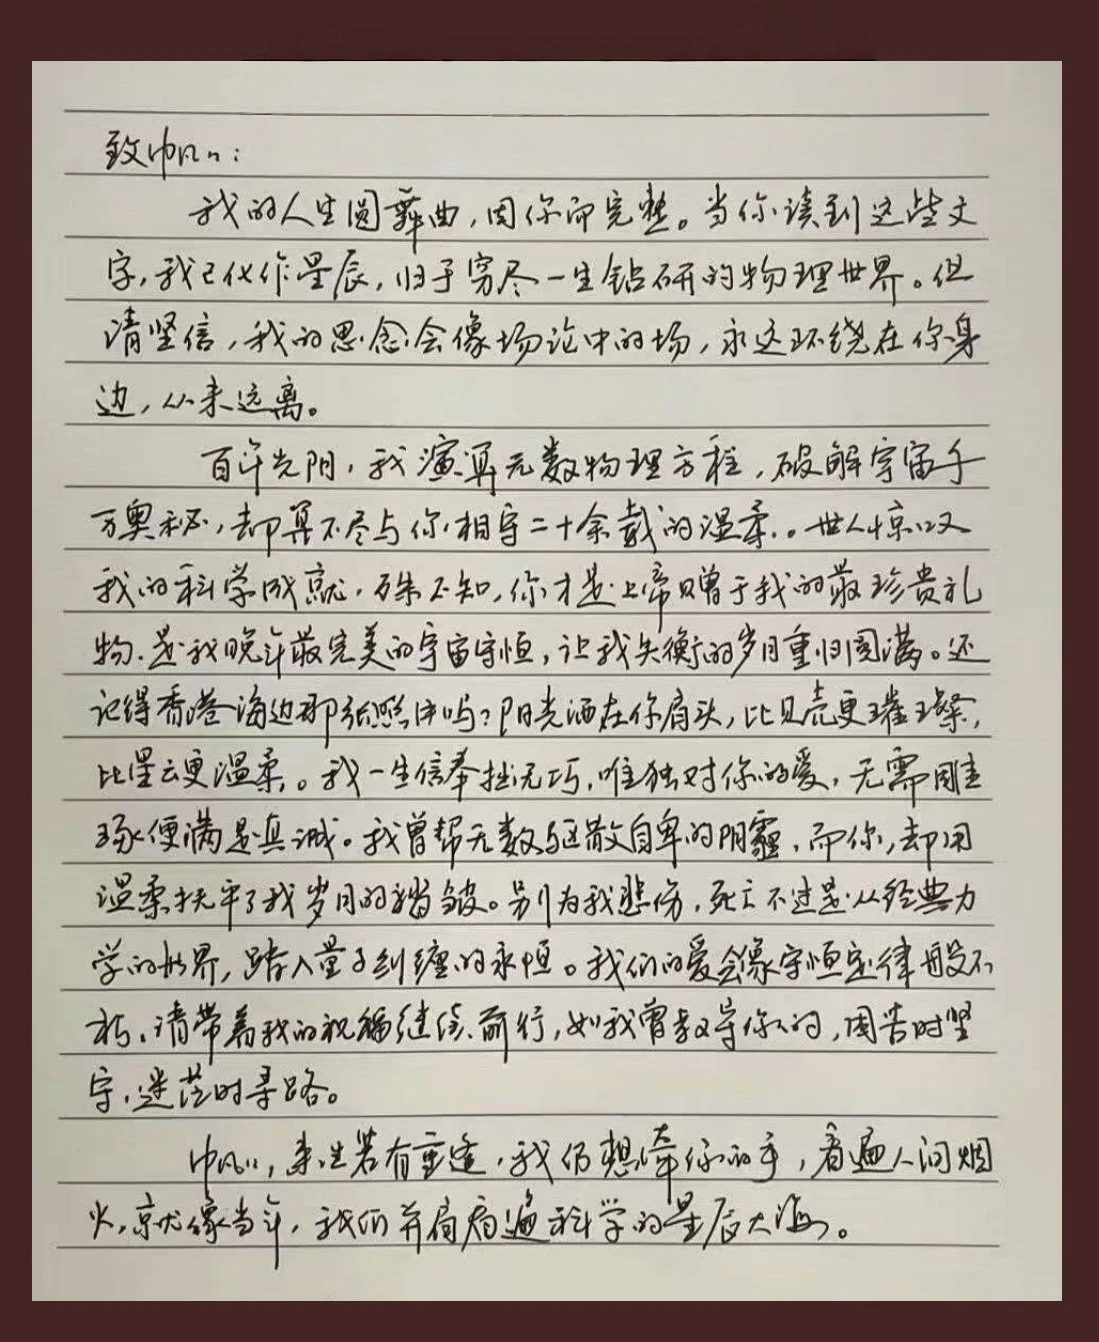 致帆帆:
我的人生圆舞曲,因你而完整。当你读到这些文
字,我已化作星辰,归于穷尽一生钻研的物理世界。但
请坚信,我的思念会像场论中的场,永远环绕在你身
边,从未远离。
百年光阴,我演算无数物理方程,破解宇宙千
万奥秘,却算不尽与你相守二十余载的温柔。世人惊叹
我的科学成就,殊不知,你才是上帝赠于我的最珍贵礼
物.是我晚年最完美的宇宙守恒,让我失衡的岁月重归圆满。还
记得香港海边那张照片吗?阳光洒在你肩头,比贝壳更璀璨,
比星云更温柔。我一生信奉拙沅巧,唯独对你的爱,无需雕
琢便满是真诚。我曾帮无数驱散自卑的阴霾,而你,却用
温柔抚平了我岁月的褶皱。别为我悲伤,死亡不过是从经典力
学的世界,踏入量子纠缠的永恒。我们的爱会像守恒定律般不
朽,请带着我的祝福继续前行,如我曾教导你的,困苦时坚
守,迷茫时寻路。
帆帆,来生若有重逢,我仍想牵你的手,看遍人间烟
火,就像当年,我们并肩看遍科学的星辰大海。